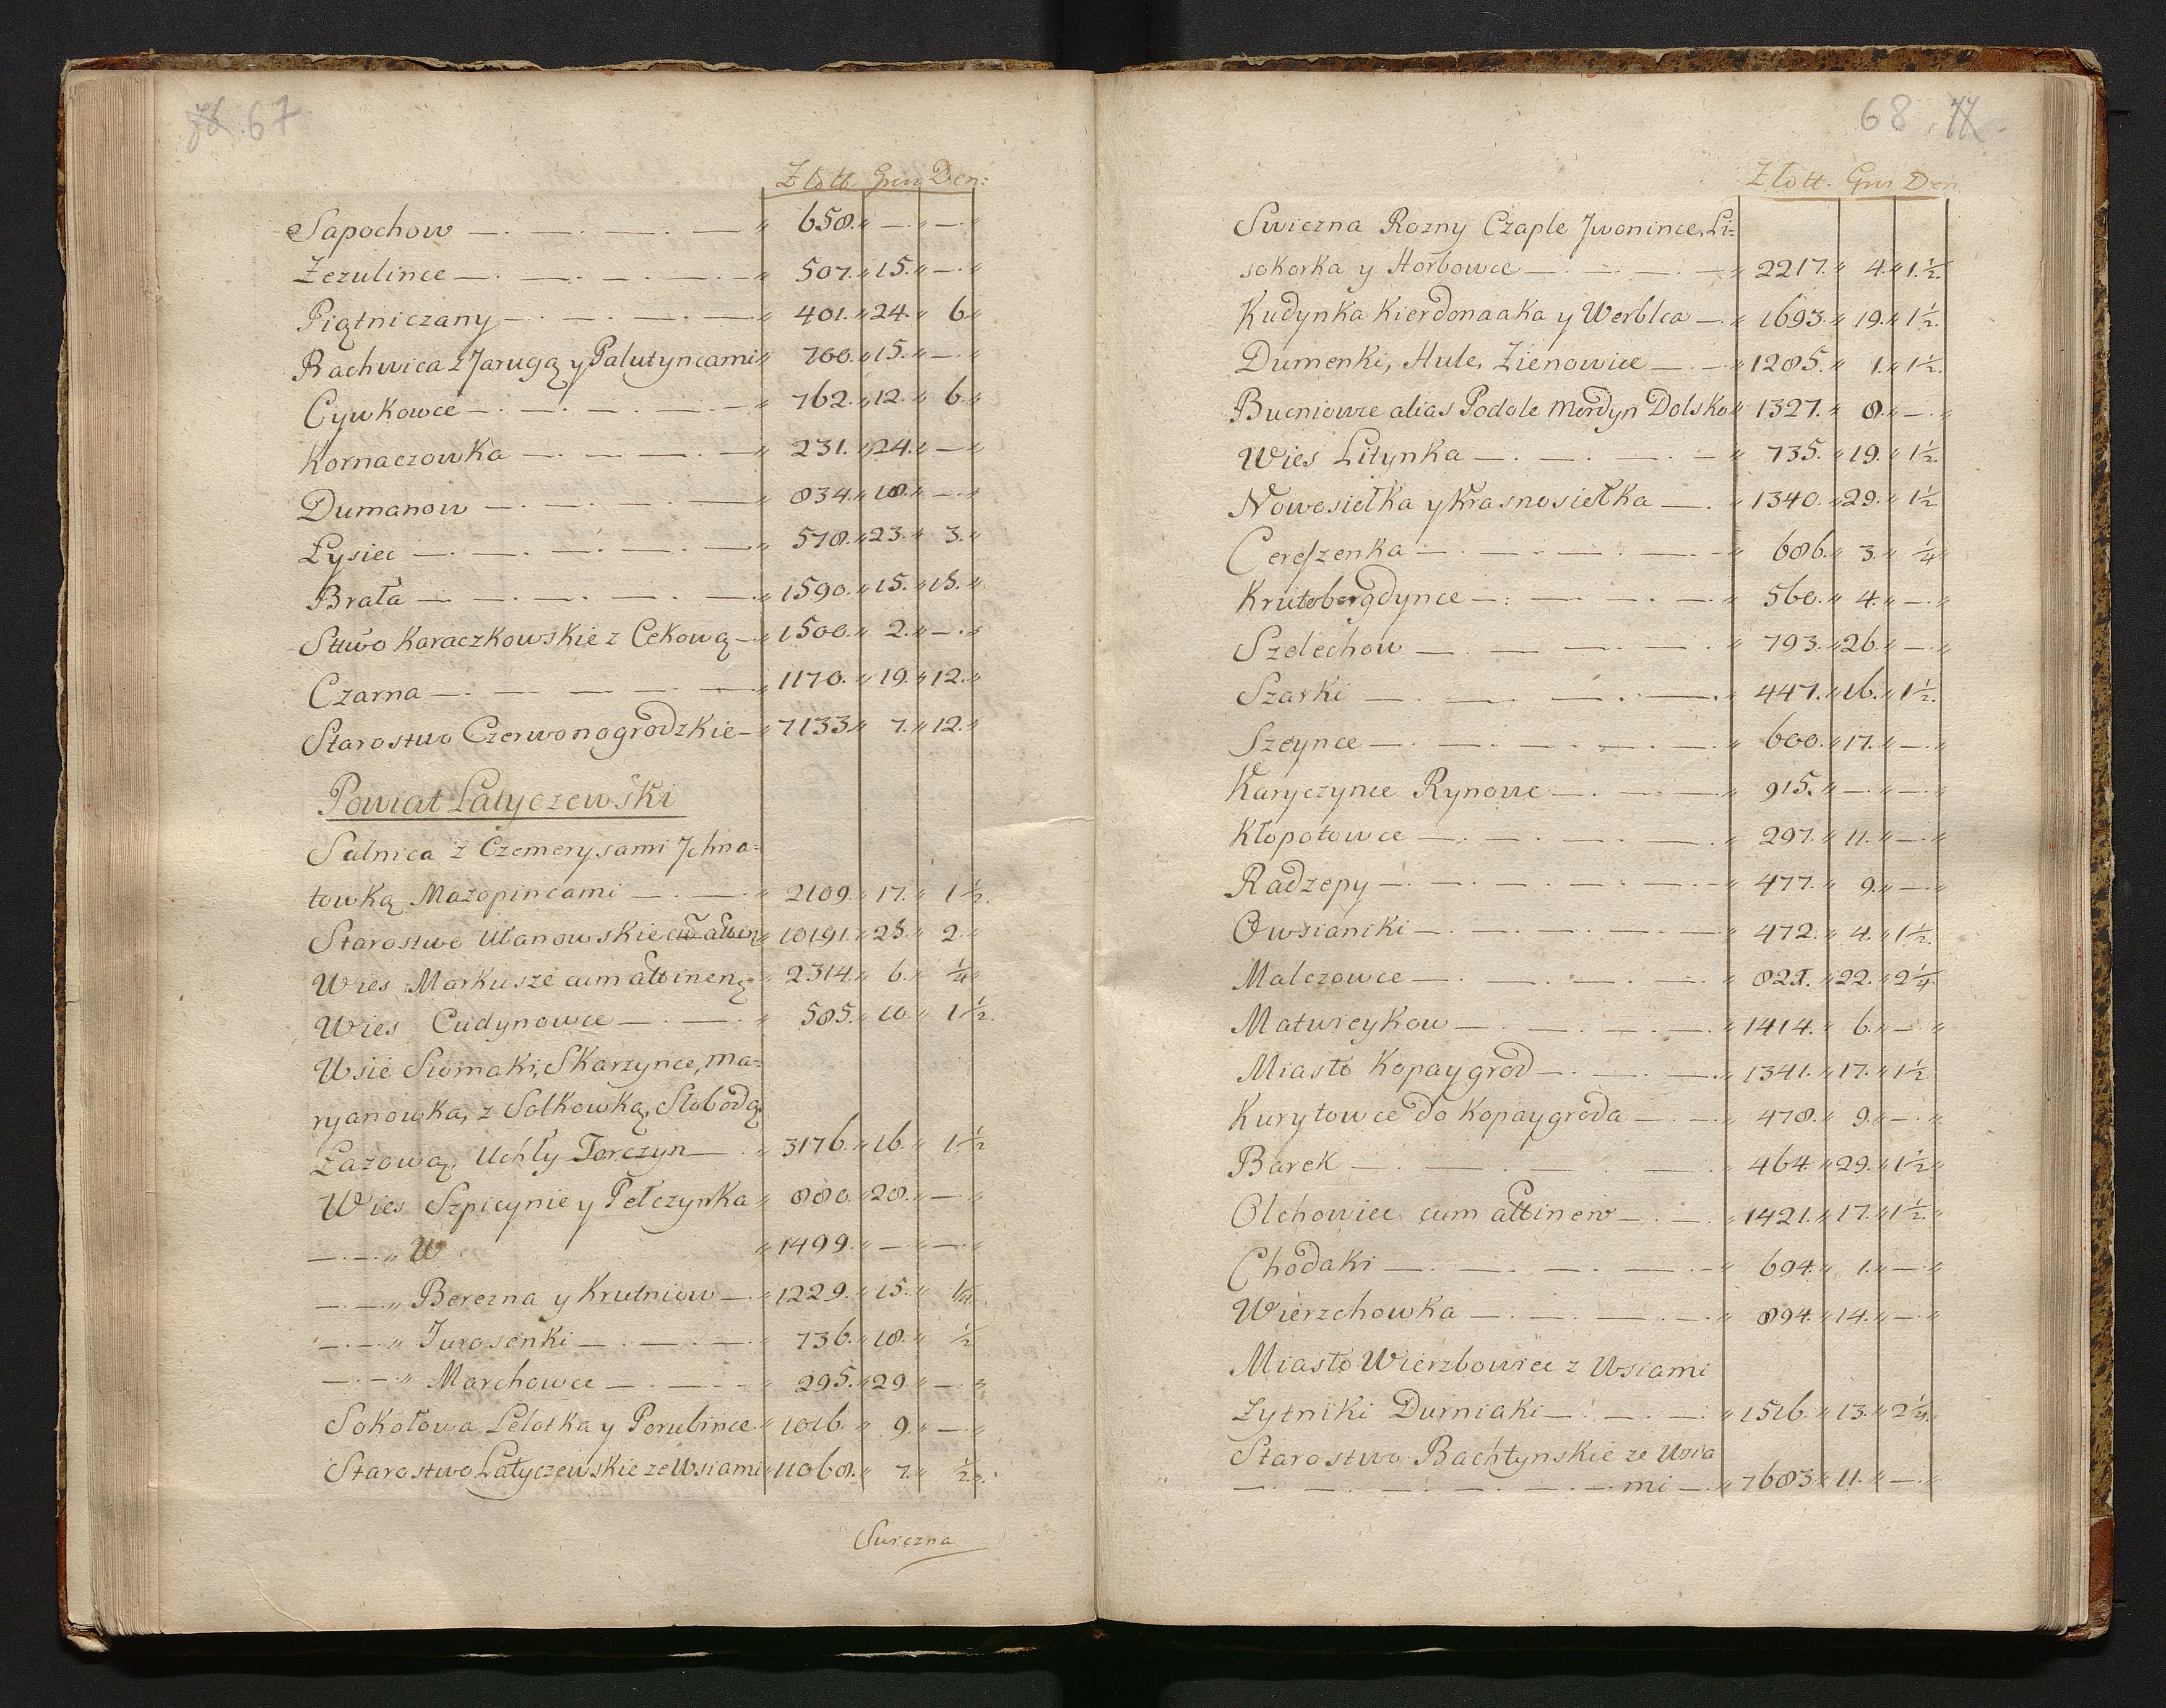 76 67
Złott. Grn Den:
Sapochow — 658. — —
Zezulince — 507. 15. —
Piątniczany — 401. 24. 6.
Rachwica z Jarugą y Palutyncami 700. 15. —
Cywkowce — 762. 12. 6.
Kornaczowka — 231. 24. —
Dumanow — 834. 18. —
Łysiec — 578. 23. 3.
Brała — 1590. 15. 15.
Sttwo Karaczkowskie z Cekową — 1500. 2. —
Czarna — 1170. 19. 12.
Starostwo Czerwonogrodzkie — 7133 7. 12.
Powiat Latyczewski
Salnica z Czemerysami Jchna-
towką Mazopincami — 2109. 17. 1 1/2.
Starostwo Ulanowskie cū attin 10191. 25. 2.
Wies Markusze cum attinen 2314. 6. 1/4
Wies Cudynowce — 585. 10. 1 1/2.
Wsie Siomaki, Skarzynce, Ma-
ryanowka, z Solkowką, Slobodą
Łazową, Uchły Torczyn — 3176. 16. 1 1/2
Wies Szpicynie y Pełczynka 880. 28. —
— " W 1499. — —
— " Berezna y Krutniow — 1229. 15. 1/4
— " Jurosenki — 736. 18. 1/2
— " Marchowce — 295. 29. —
Sokołowa Lelotka y Porubince 1016. 9. —
Starostwo Latyczewskie ze Wsiami 11068. 7. 1/2.
Swiczna
68 77
Złott. Grn Den
Swiczna Rozny Czaple Jwonince, Li-
sokorka y Horbowce — 2217. 4. 1 1/2.
Kudynka Kierdonaaka y Werblca — 1693. 19. 1 1/2.
Dumenki, Hule, Zienowice — 1285. 1. 1 1/2.
Bucniowce alias Podole Mordyn Dolsko 1327. 8. —
Wies Litynka — 735. 19. 1 1/2.
Nowosiełka y Krasnosiełka — 1340. 29. 1 1/2
Cereszenka — 686. 3. 1/4
Krutoborgdynce — 560. 4. —
Szelechow — 793. 26. —
Szarki — 447. 16. 1 1/2.
Szeynce — 600. 17. —
Karyczynce Rynowe — 915. — —
Kłopotowce — 297. 11. —
Radzepy — 477. 9. —
Owsianiki — 472. 4. 1 1/2.
Malczowce — 821. 22. 2 1/4
Matwieykow — 1414. 6. —
Miasto Kopaygrod — 1341. 17. 1 1/2
Kurytowce do Kopaygroda — 478. 9. —
Barek — 464. 29. 1 1/2
Olchowiec cum attinen — 1421. 17. 1 1/2.
Chodaki — 694. 1. —
Wierzchowka — 894. 14. —
Miasto Wierzbowiec z Wsiami
Zytniki Durniaki — 1516. 13. 2 1/4.
Starostwo Bachtynskie ze Wsia
— mi — 7683 11. —